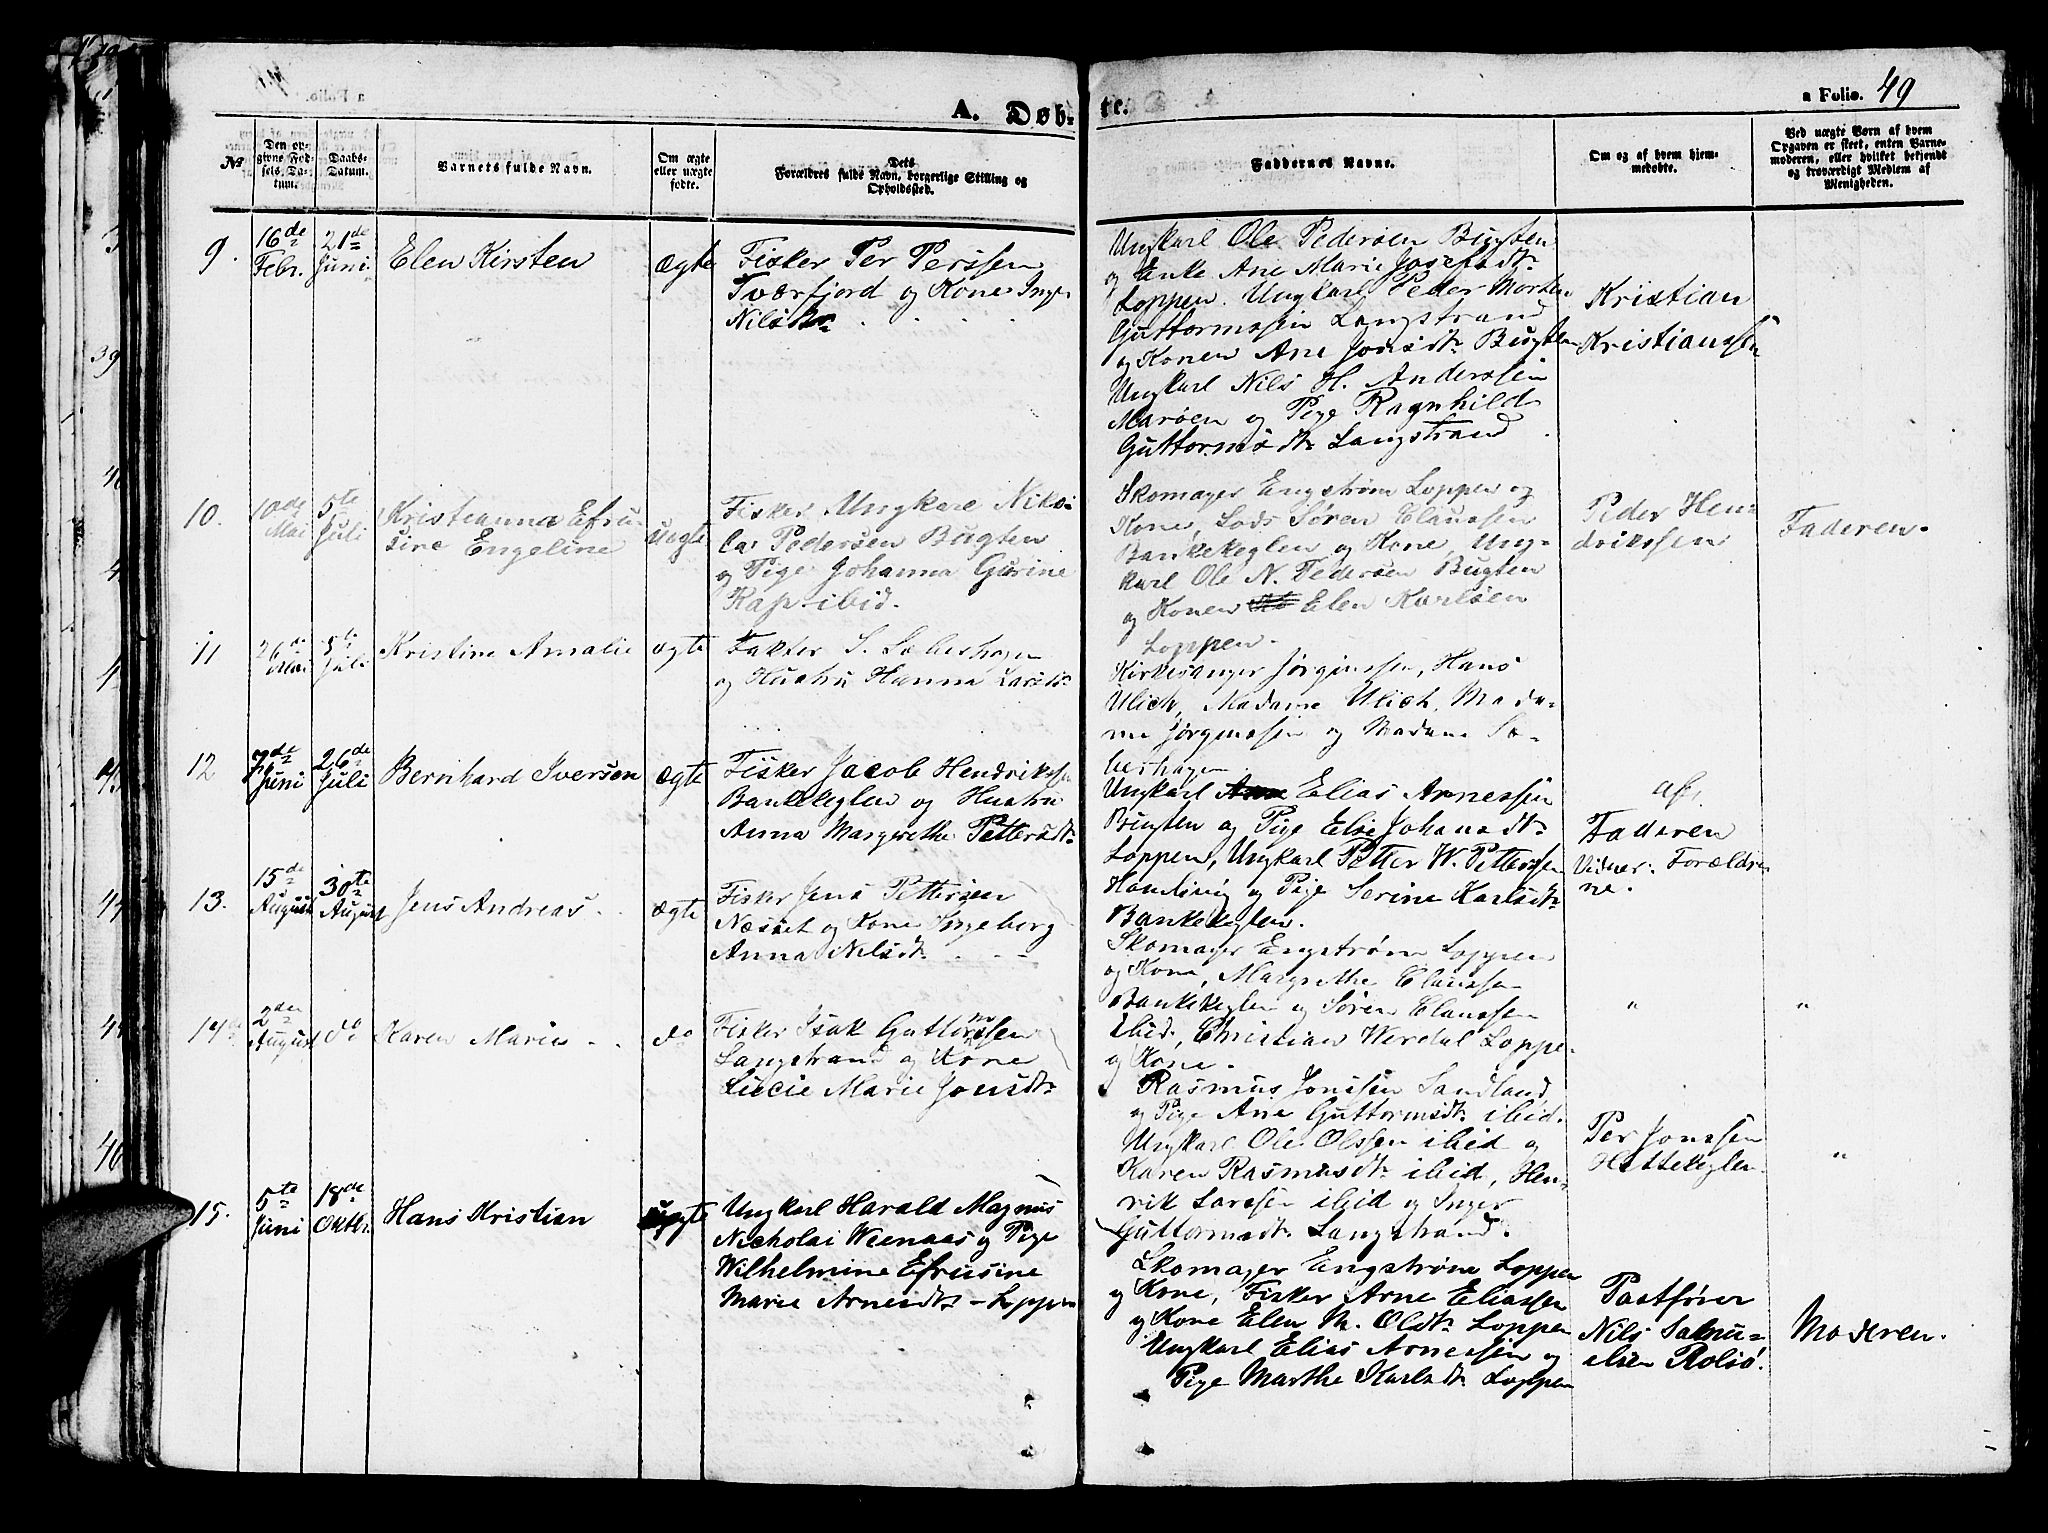 a Folio. 49
A. Døbte.
No
Den opgivne Fødsels-Datum.
Daabs-Datum.
Barnets fulde Navn.
Om ægte eller uægte fødte.
Dets Forældres fulde Navn, borgerlige Stilling og Opholdssted.
Faddernes Navne.
Om og af hvem hjemmedøbte.
Ved uægte Børn af hvem Opgaven er skeet, enten Barnemoderen, eller hvilket bekjendt og troværdigt Medlem af Menigheden.
9.
16de Febr.
21de Juni
Elen Kirsten
ægte
Fisker Per Perssen
Tværfjord og Kone Inge
Nilsdtr
Ungkarl Ole Pedersen Bugten
og Enke Ane Marie Josefsdtr
Loppen. Ungkarl Peder Morten
Guttormssen Langstrand
og Konen Ane Jonsdtr Bugten
Ungkarl Nils H. Anderssen
Marøen og Pige Ragnhild
Guttormsdtr Langstrand.
Kristian
Kristianssen
10.
10de Mai
5te Juli
Kristianna Efru-
sine Engeline
uægte
Fisker Ungkarl Nikoi-
lai Pedersen Bugten
og Pige Johanna Gurine
Kap ibid.
Skomager Engstrøm Loppen og
Kone, Lods Søren Claussen
Bankekeglen og Kone, Ung-
karl Ole N. Pedersen Bugten
og Konen Elen Karlsen
Loppen.
Peder Hen-
drikssen
Faderen.
11
26de Mai
5te Juli
Kristine Amalie
ægte
Faktor S.
og Hustru Hanna Larsdtr
Kirkesanger Jørginssen, Hans
Ulich, Madame Ulich, Mada-
me Jørginssen og Madame
12
7de Juni
26de Juli
Bernhard Iversen
ægte
Fisker Jacob Hendrikssen
Bankekeglen og Hustru
Anna Margrethe Pettersdtr
Ungkarl Elias Arnessen
Bugten og Pige Else Johansdtr
Loppen, Ungkarl Petter W. Petterssen
og Pige Serine Karlsdtr
Bankekeglen.
af
Faderen
Vidner: Forældre-
ne.
13.
15de August
30te August
Jens Andreas
ægte
Fisker Jens Pettersen
Næsset og Kone Ingeborg
Anna Nilsdtr
Skomager Engstrøm Loppen
og Kone, Margrethe Claussen
Bankekeglen og Søren Claussen
ibid, Christian Werdal Loppe-
og Kone.
"
"
14
2den August
do
Karen Marie
do
Fisker Isak Guttormssen
Langstrand og Kone
Lucie Marie Jonsdtr
Rasmus Jonssen Sandland,
og Pige Ane Guttormsdtr ibid.
Ungkarl Ole Olssen ibid og
Karen Rasmusdtr ibid, Hen-
rik Larssen ibid og Inger
Guttormsdtr Langstrand.
Per Jonssen
Hettekeglen.
"
15.
5te Juni
18de Oktbr.
Hans Kristian
uægte
Ungkarl Harald Magnus
Nicholai Weenaas og Pige
Wilhelmine Efrusine
Marie Arnesdtr - Loppen
Skomager Engstrøm Loppen
og Kone, Fisker Arne Eliassen
og Kone Elen M. Olsdtr Loppen
Ungkarl Elias Arnessen og
Pige Marthe Karlsdtr Loppen
Postfører
Nils Samu-
elsen Rolsø.
Moderen.